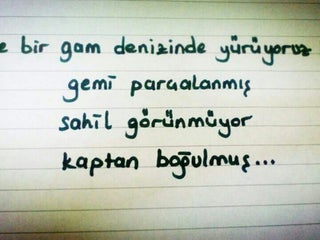 e bir gam denizinde yürüyoruz
gemi parçalanmış
sahil görünmüyor
kaptan boğulmuş...